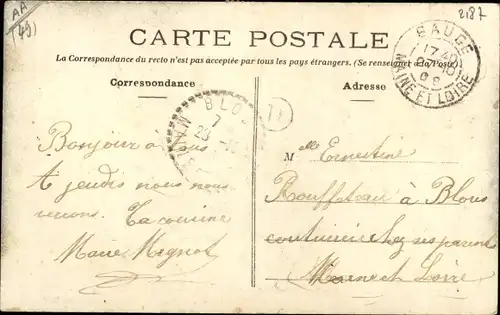 AA
(49)
2187
CARTE POSTALE
La Correspondance du recto n'est pas acceptée par tous les pays étrangers. (Se renseigner à la Poste)
Correspondance
Adresse
BAUGÉ
17
08
MAINE ET LOIRE
BLOU
7
23
Bonjour à tous
A jeudi nous nous
verrons. Ta cousine
Marie Mignot
Mlle Ernestine
à Blou
couturière chez ses parents
Maine et Loire